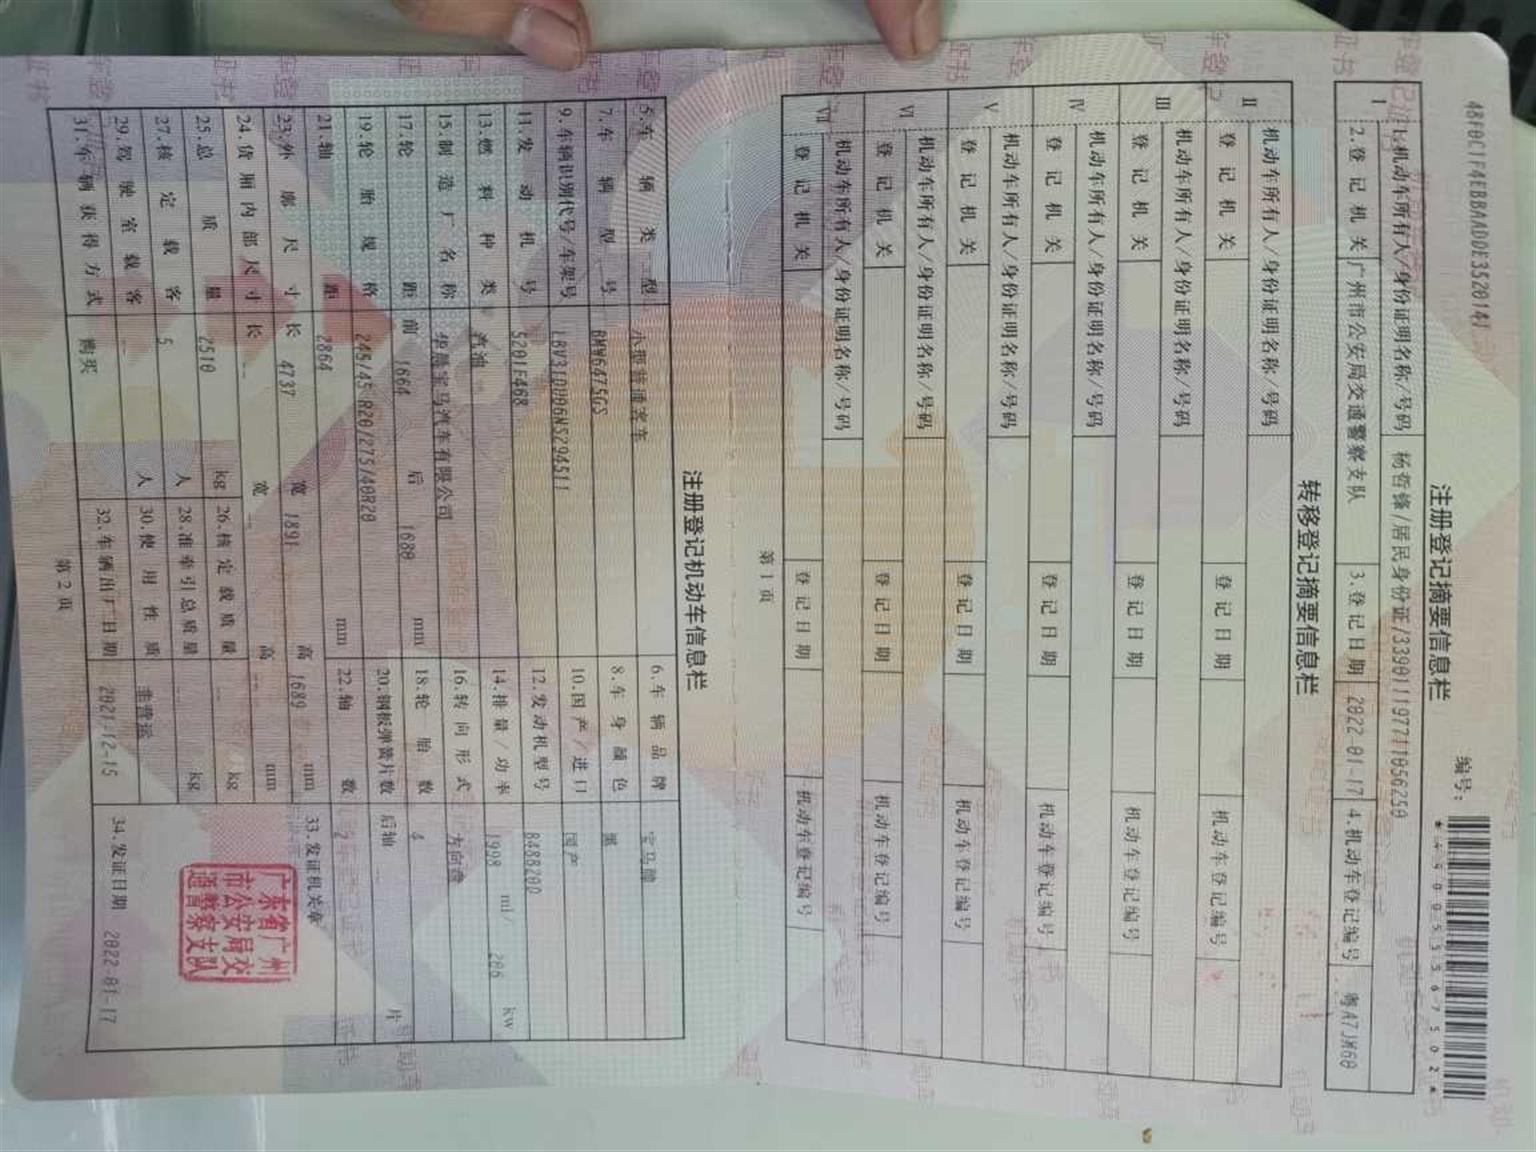 48F0C1F4EBBAAD0E3520141
注册登记摘要信息栏
编号：
*440055567502*
I
1.机动车所有人/身份证明名称/号码 杨哲锋/居民身份证/339011197711056250
2.登记机关 广州市公安局交通警察支队 3.登记日期 2022-01-17 4.机动车登记编号 粤A7JM60
转移登记摘要信息栏
II 机动车所有人/身份证明名称/号码
登记机关 登记日期 机动车登记编号
III 机动车所有人/身份证明名称/号码
登记机关 登记日期 机动车登记编号
IV 机动车所有人/身份证明名称/号码
登记机关 登记日期 机动车登记编号
V 机动车所有人/身份证明名称/号码
登记机关 登记日期 机动车登记编号
VI 机动车所有人/身份证明名称/号码
登记机关 登记日期 机动车登记编号
VII 机动车所有人/身份证明名称/号码
登记机关 登记日期 机动车登记编号
第1页
注册登记机动车信息栏
5.车辆类型 小型普通客车 6.车辆品牌 宝马牌
7.车辆型号 BMW6475GS 8.车身颜色 黑
9.车辆识别代号/车架号 LBV31DU06NS294511 10.国产/进口 国产
11.发动机号 5201F468 12.发动机型号 B48B20D
13.燃料种类 汽油 14.排量/功率 1998 ml/ 206 kw
15.制造厂名称 华晨宝马汽车有限公司 16.转向形式 方向盘
17.轮距 前 1664 后 1680 mm 18.轮胎数 4
19.轮胎规格 245/45 R20/275/40R20 20.钢板弹簧片数 后轴 -- 片
21.轴距 2864 mm 22.轴数 2
23.外廓尺寸 长 4737 宽 1891 高 1689 mm 33.发证机关章
24.货厢内部尺寸 长 -- 宽 -- 高 -- mm
25.总质量 2510 kg 26.核定载质量 -- kg
27.核定载客 5 人 28.准牵引总质量 -- kg
29.驾驶室载客 -- 人 30.使用性质 非营运
31.车辆获得方式 购买 32.车辆出厂日期 2021-12-15 34.发证日期 2022-01-17
广东省广州
市公安局交
通警察支队
第2页